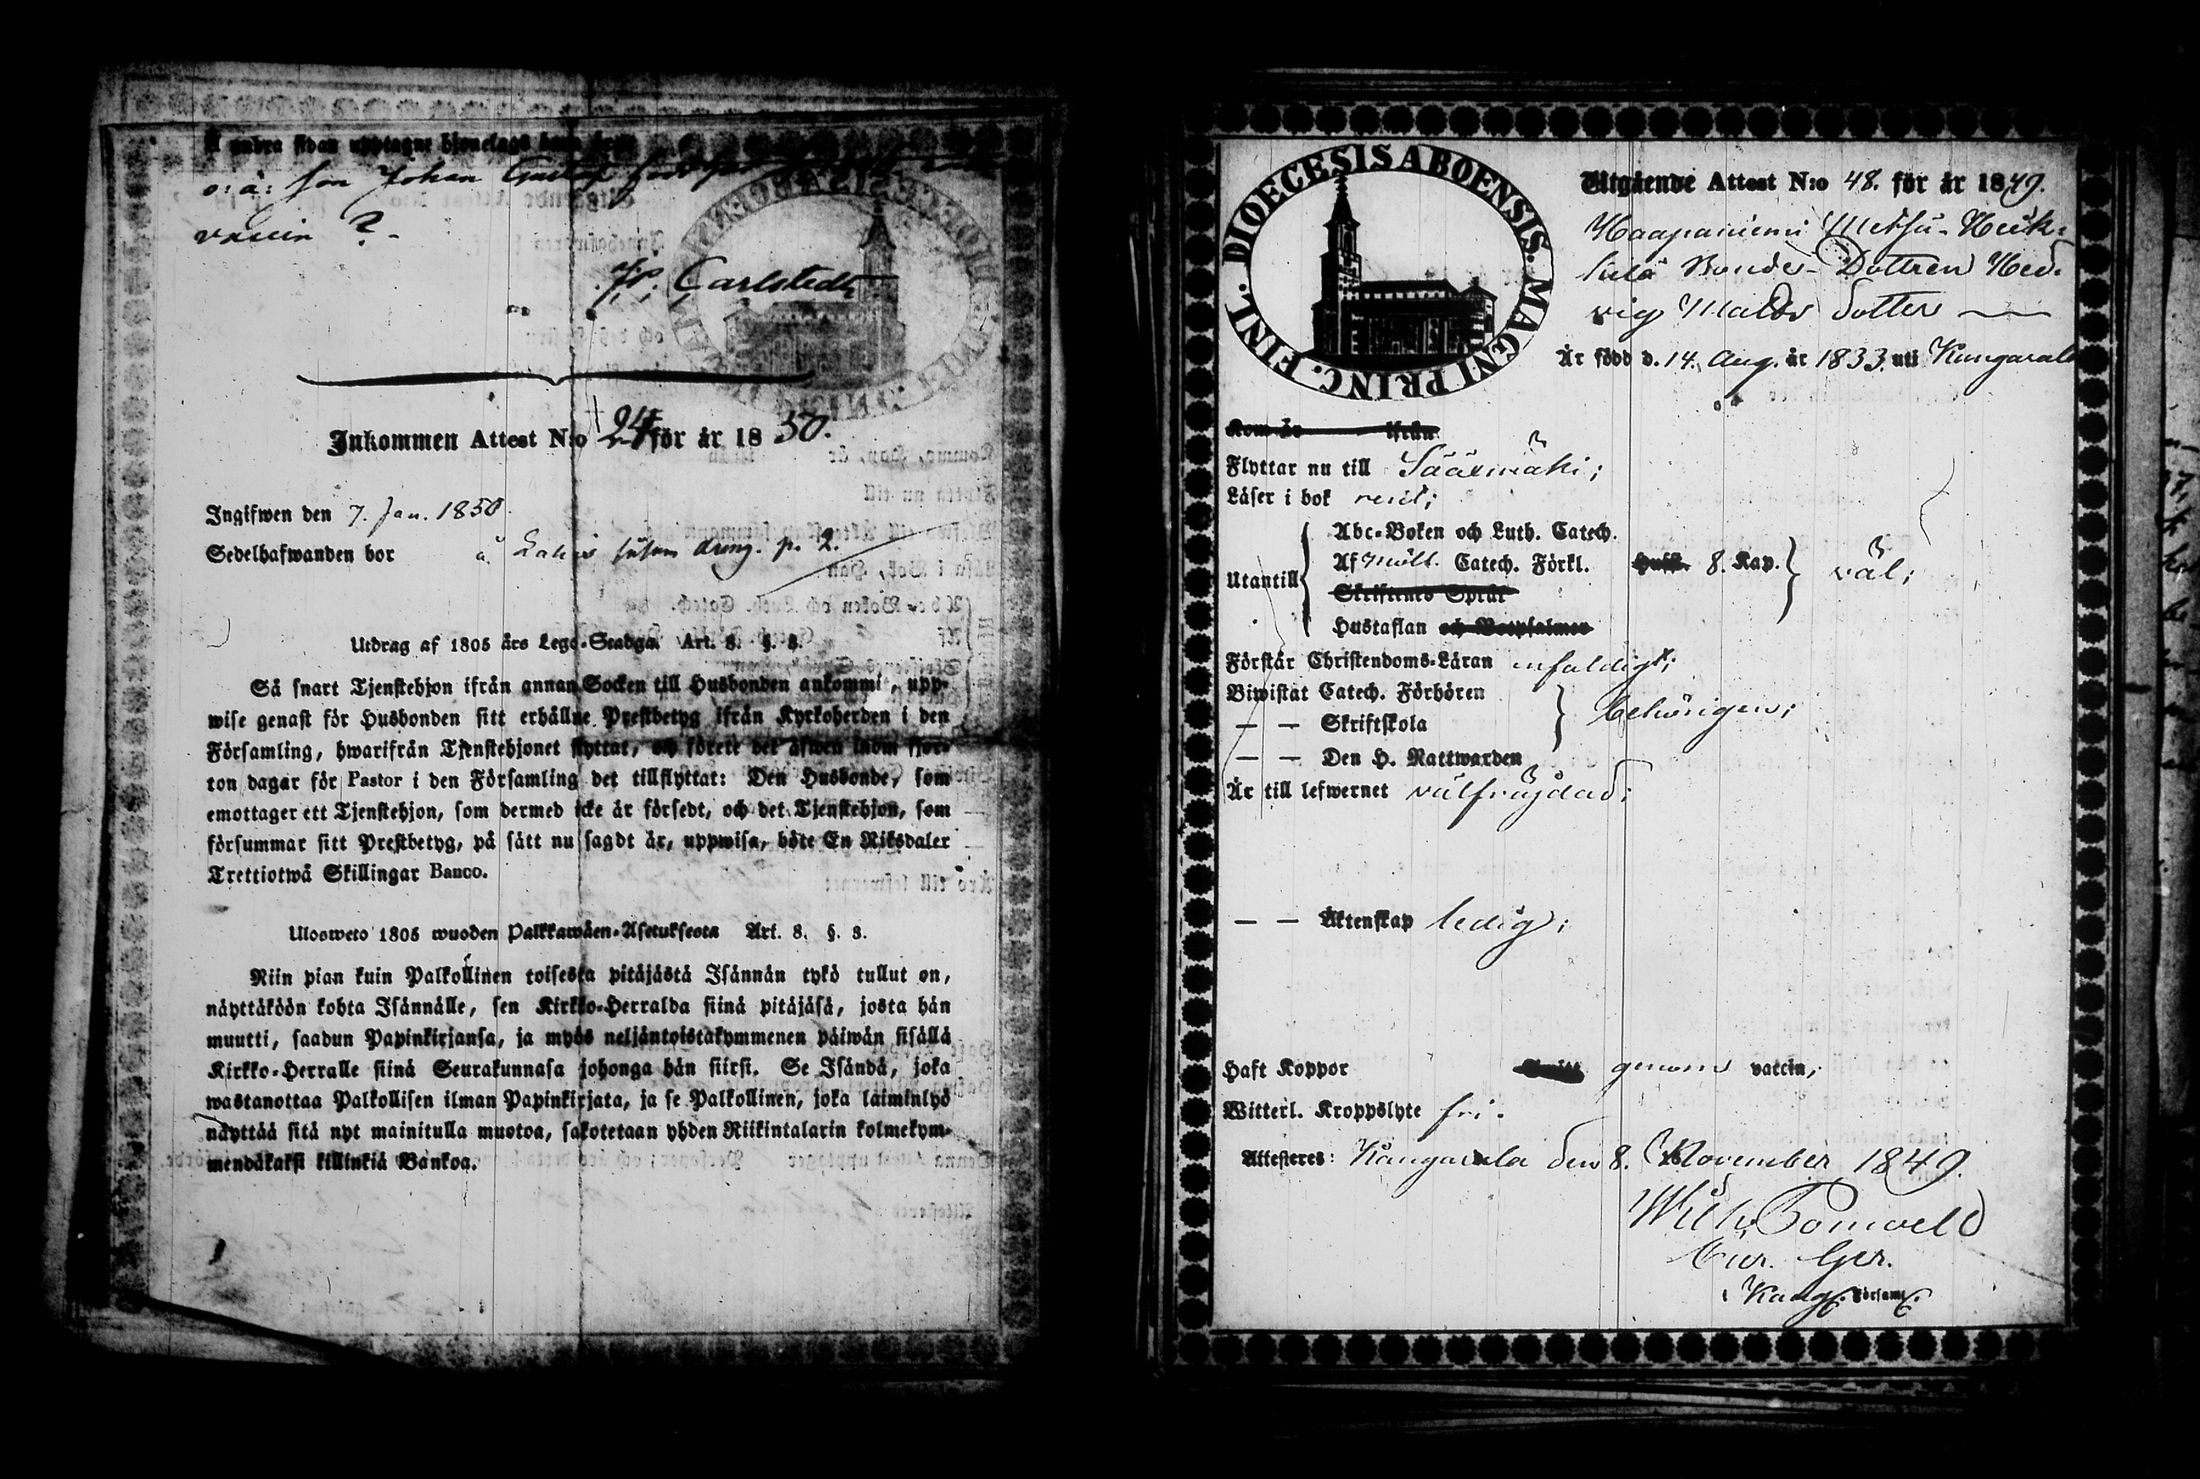 Å andra sidan upptagne hjonelags barn äro:
o: ä: son Johan Gustaf född
vaccin ? -
Carlstedt
Inkommen Attest N:o 24 för år 1850.
Ingifwen den 7. Jan. 1850.
Sedelhafwanden bor å dreng. p. 2.
Utdrag af 1805 års Lego-Stadga. Art. 8. §. 8.
Så snart Tjenstehjon ifrån annan Socken till Husbonden ankommit, upp-
wise genast för Husbonden sitt erhållne Prestbetyg ifrån Kyrkoherden i den
Församling, hwarifrån Tjenstehjonet flyttat, och förete det äfwen inom fjor-
ton dagar för Pastor i den Församling det tillflyttat: Den Husbonde, som
emottager ett Tjenstehjon, som dermed icke är försedt, och det Tjenstehjon, som
försummar sitt Prestbetyg, på sätt nu sagdt är, uppwisa, böte En Riksdaler
Trettiotwå Skillingar Banco.
Ulosweto 1805 wuoden Palkkawäen-Asetuksesta Art. 8. §. 8.
Niin pian kuin Palkollinen toisesta pitäjästä Isännän tykö tullut on,
näyttäköön kohta Isännälle, sen Kirkko-Herralda siinä pitäjäsä, josta hän
muutti, saadun Papinkirjansa, ja myös neljäntoistakymmenen päiwän sisällä
Kirkko-Herralle siinä Seurakunnasa johonga hän siirsi. Se Isändä, joka
wastanottaa Palkollisen ilman Papinkirjata, ja se Palkollinen, joka laiminlyö
näyttää sitä nyt mainitulla muotoa, sakotetaan yhden Riikintalarin kolmekym-
mendäkaksi killinkiä Bankoa.
DIOECESIS ABOENSIS. MAGNI PRINC. FINL.
Utgående Attest N:o 48. för år 1849.
Haapaniemi Metsä-Heik-
kilä Bonde-Dottren Hed-
vig Matds dotter
Är född d. 14. Aug. år 1833. uti Kangasala
Kom år ifrån
Flyttar nu till Sääxmäki;
Läser i bok rent;
Utantill
Abc-Boken och Luth. Catech.
Af Catech. Förkl. 8. Kap. väl;
Skriftenes Språk
Hustaflan och Botpsalmer
Förstår Christendoms-Läran enfaldigt;
Biwistat Catech. Förhören
— — Skriftskola behörigen;
— — Den H. Nattwarden
Är till lefwernet välfräjdad;
— — Äktenskap ledig;
Haft Koppor genom vaccin;
Witterl. Kroppslyte fri.
Attesteres: Kangasala den 8. November 1849.
Wilh.
Cur. Ger.
Kang. Församl.